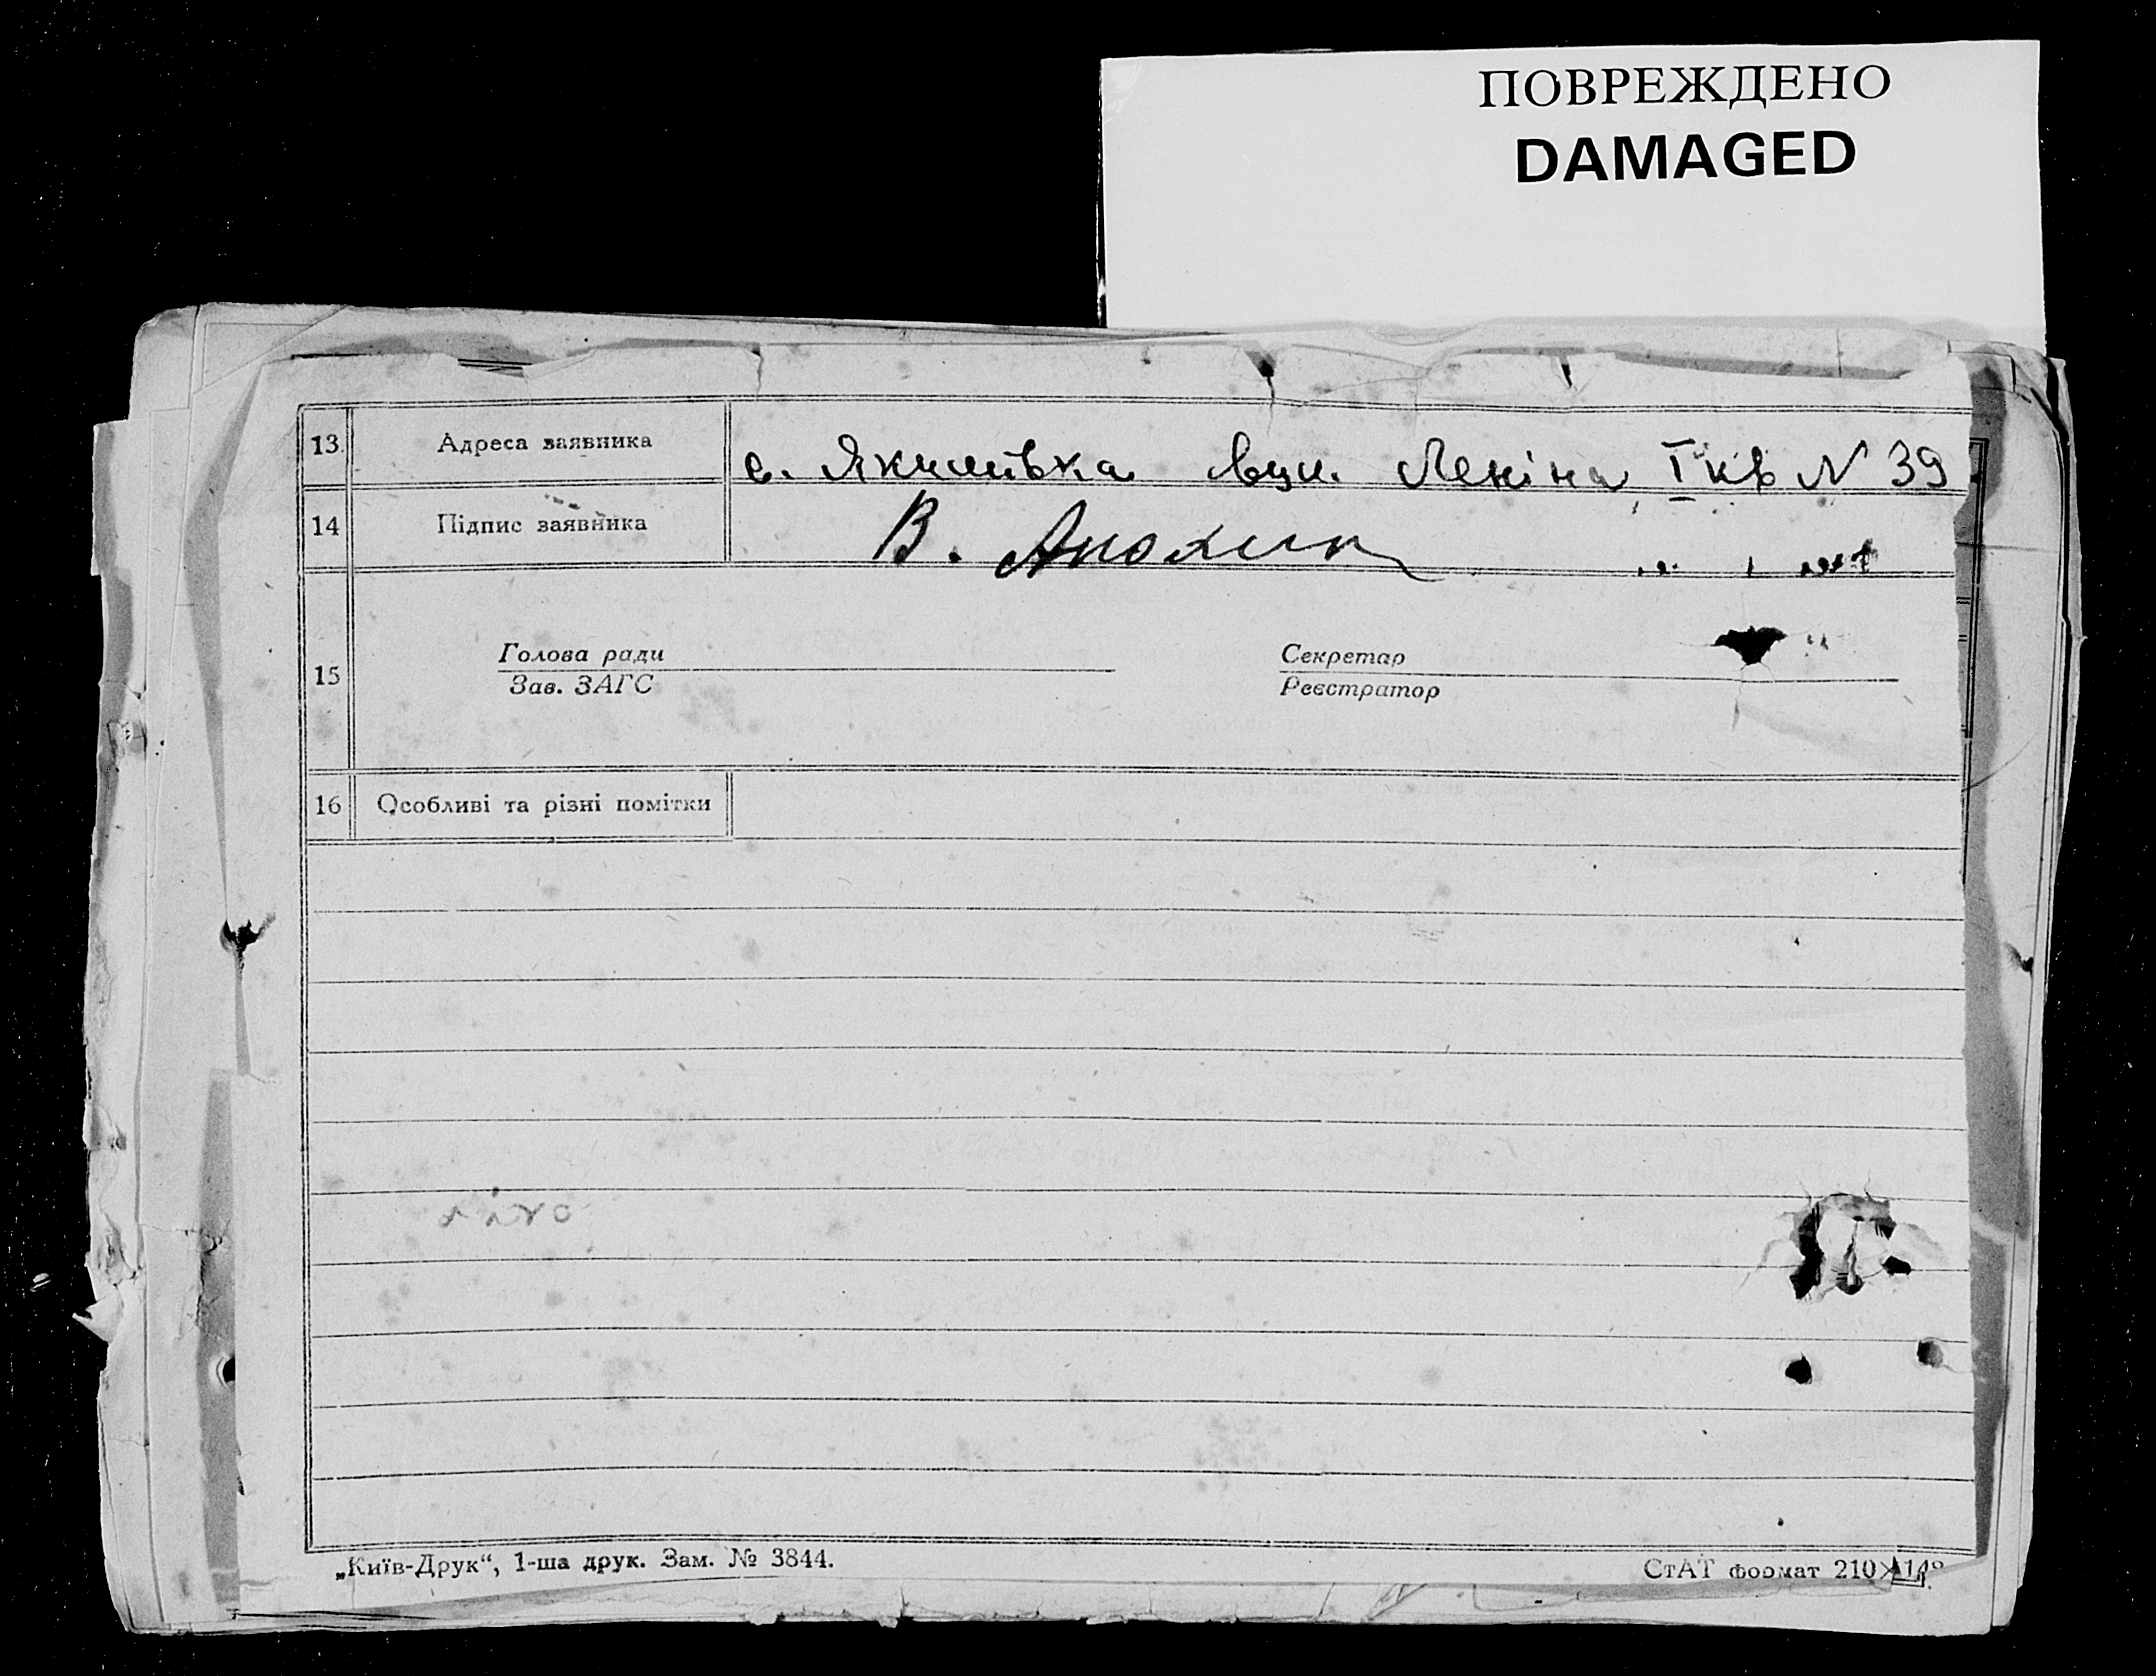 ПОВРЕЖДЕНО
DAMAGED
13 Адреса заявника с. Якимівка вул. Леніна I кв N 39
14 Підпис заявника В.
15 Голова ради Секретар
Зав. ЗАГС Реєстратор
16 Особливі та різні помітки
„Київ-Друк“, 1-ша друк. Зам. № 3844. СтАТ формат 210×148